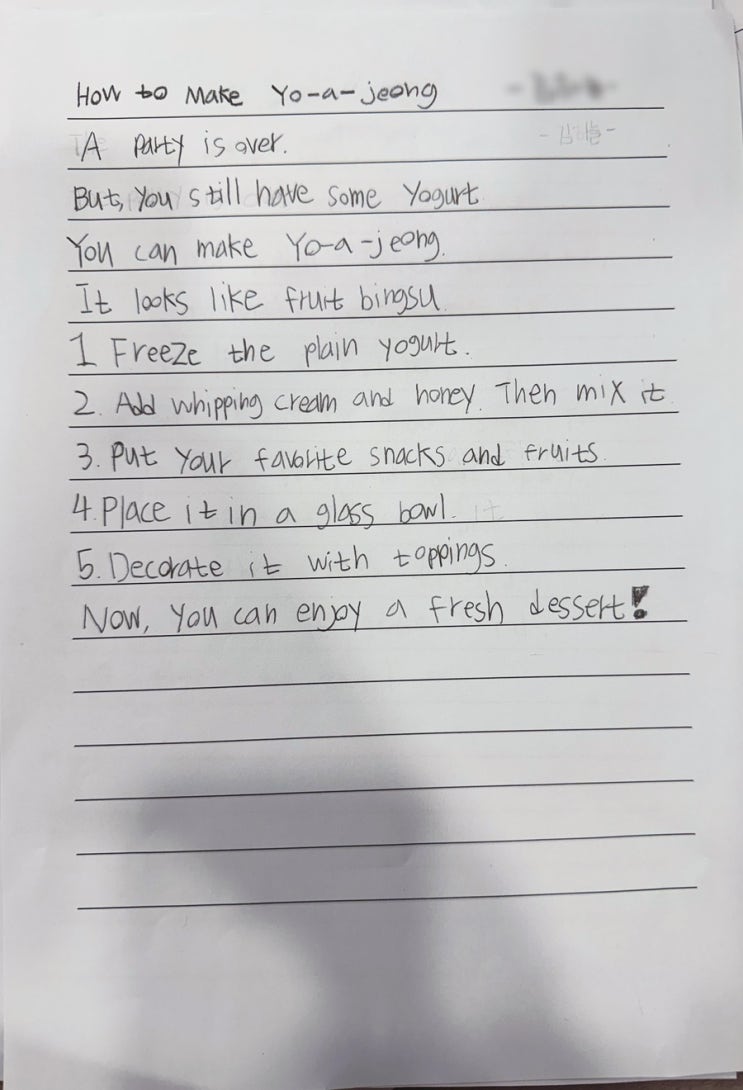 How to Make Yo-a-jeong
A Party is over.
But, You still have some Yogurt
You can make Yo-a-jeong.
It looks like fruit bingsu
1 Freeze the plain yogurt.
2. Add whipping cream and honey. Then mix it
3. Put Your favorite snacks and fruits.
4. Place it in a glass bowl.
5. Decorate it with toppings.
Now, You can enjoy a fresh dessert!